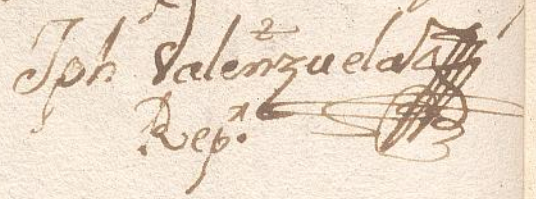 Jph Valenzuela
Rep.r